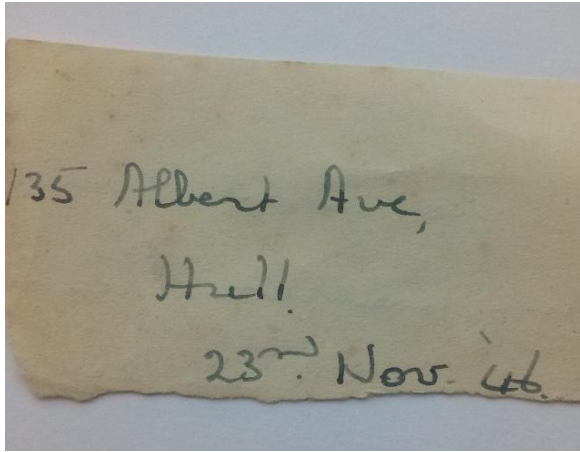 135 Albert Ave,
Hull.
23rd. Nov. '46.